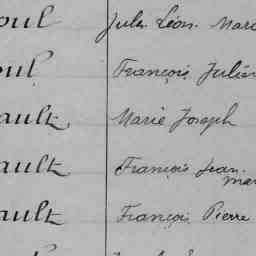 oul Jules Léon Marc
oul François Julien
ault Marie Joseph
ault François Jean
Mar
ault François Pierre